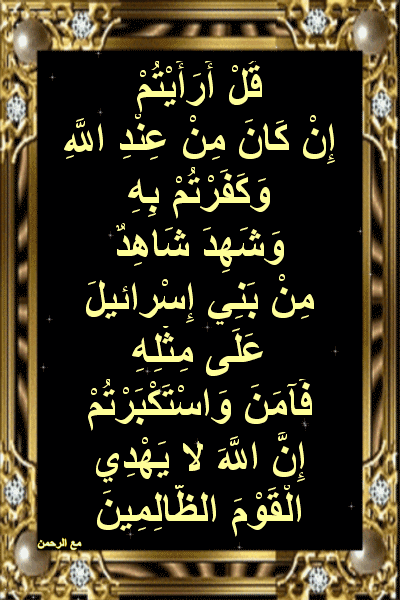 قَلْ أَرَأَيْتُمْ
إِنْ كَانَ مِنْ عِنْدِ اللَّهِ
وَكَفَرْتُمْ بِهِ
وَشَهِدَ شَاهِدٌ
مِنْ بَنِي إِسْرائيلَ
عَلَى مِثْلِهِ
فَآمَنَ وَاسْتَكْبَرْتُمْ
إِنَّ اللَّهَ لا يَهْدِي
الْقَوْمَ الظَّالِمِينَ
مع الرحمن